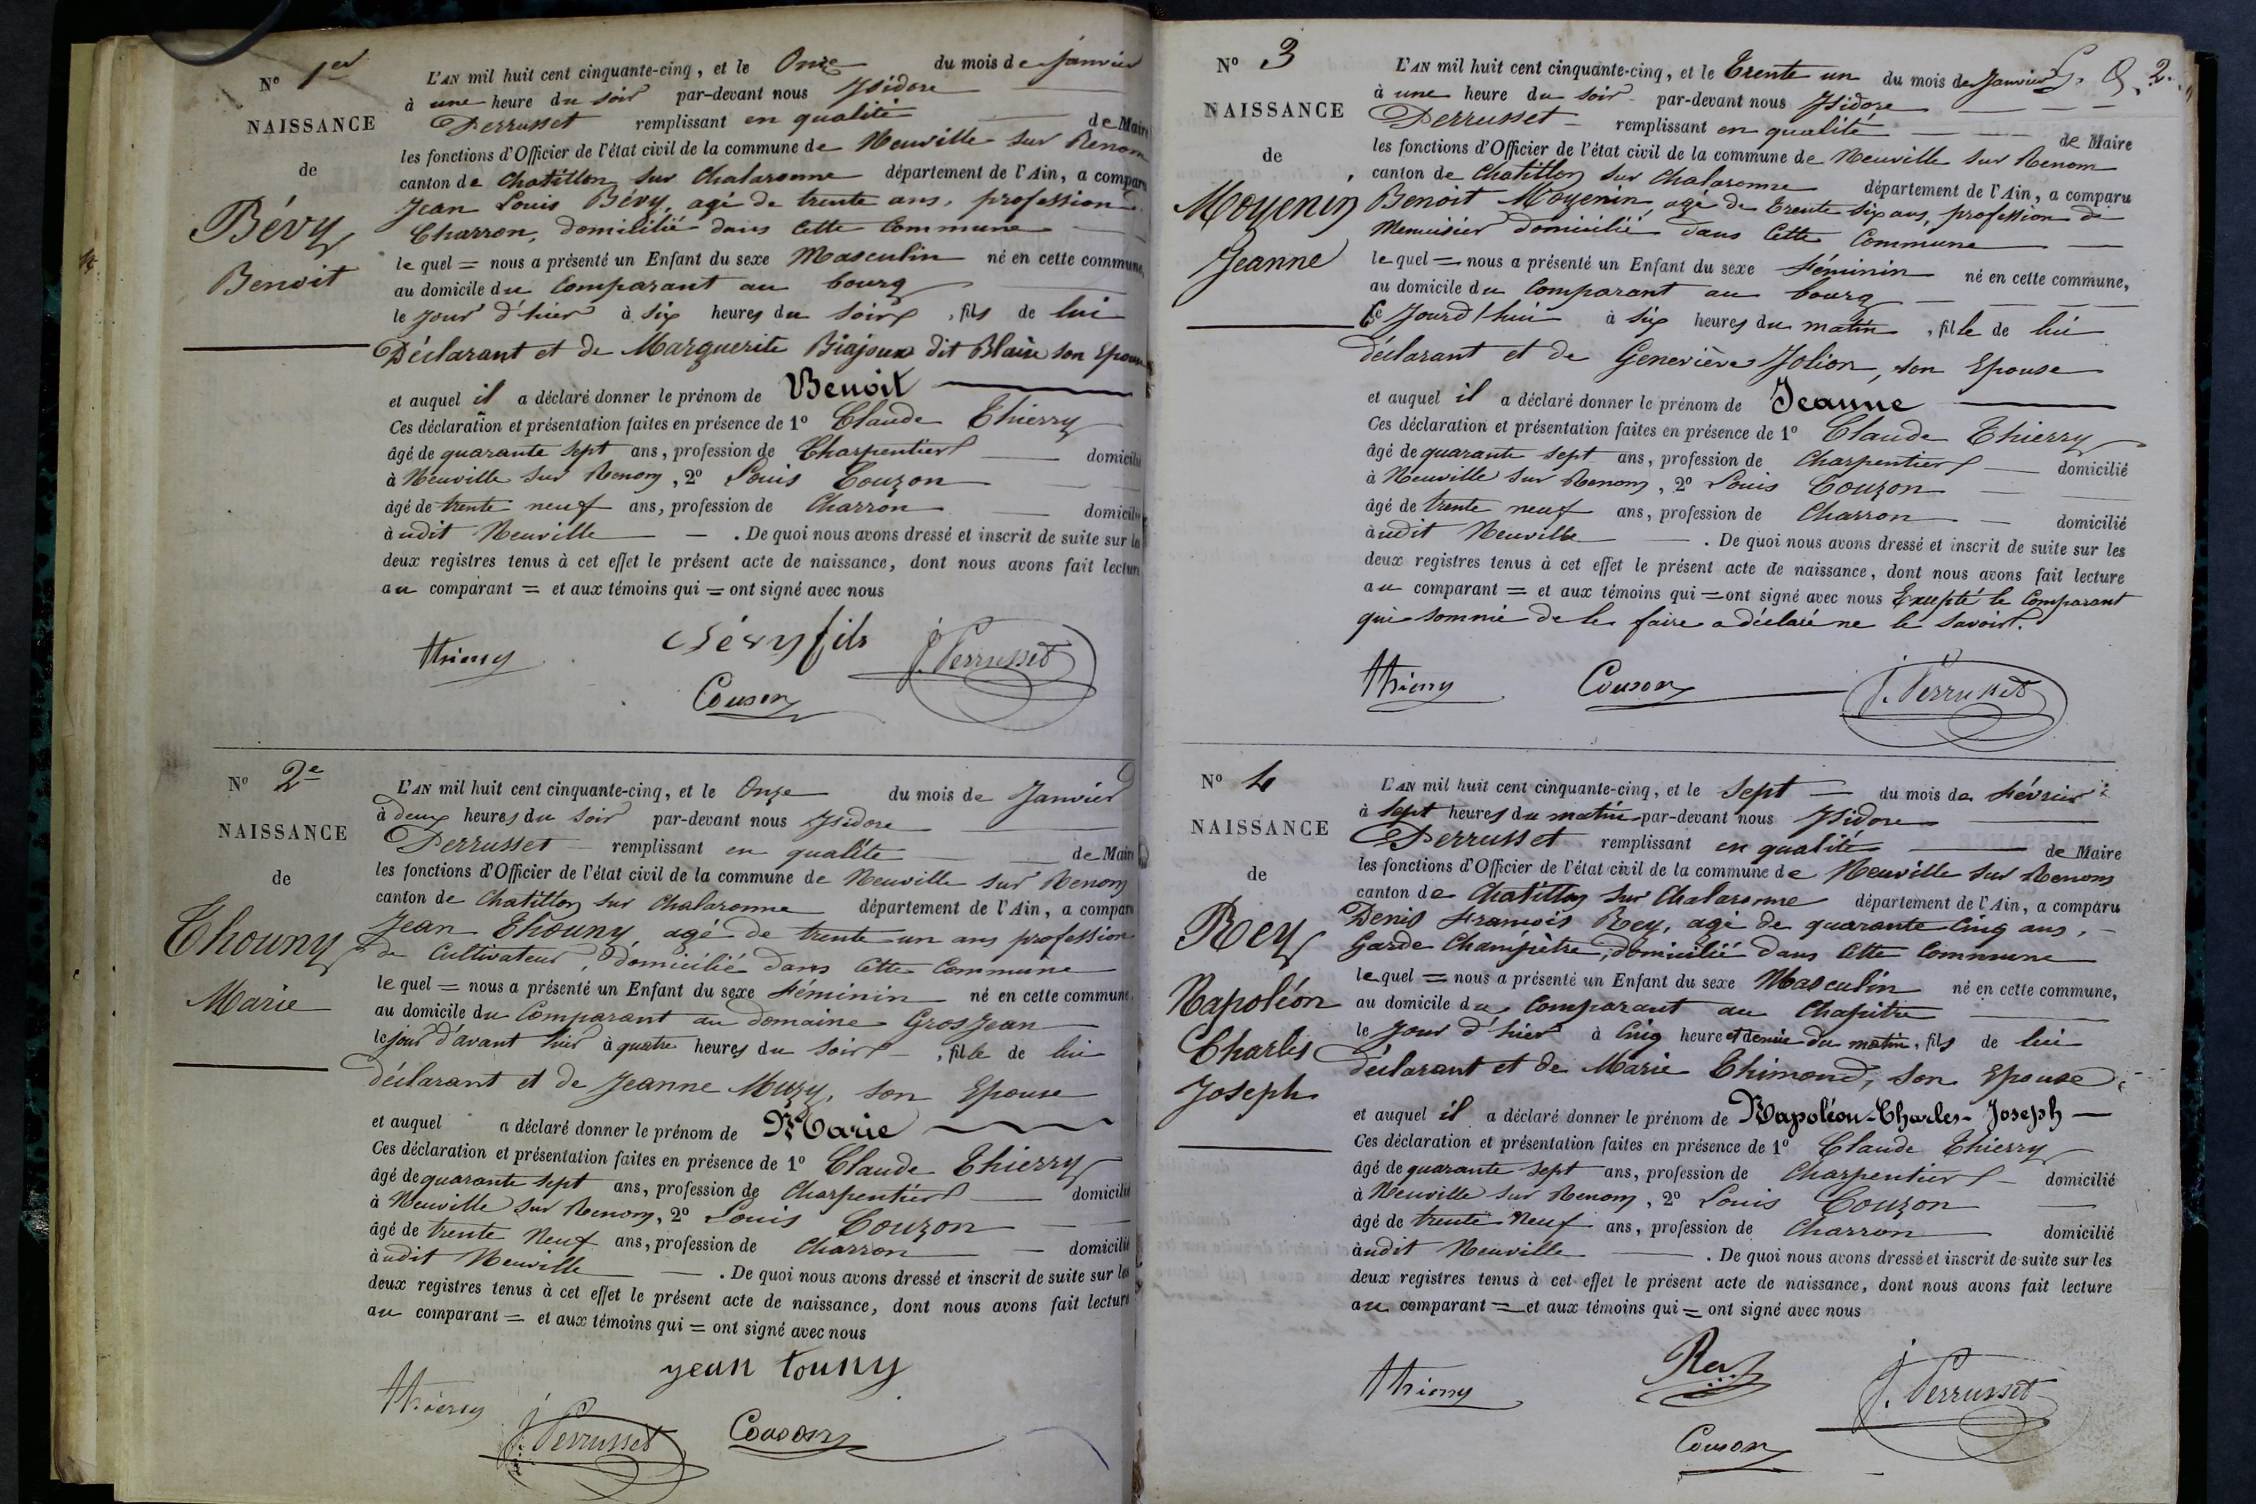 N° 1er
NAISSANCE
de
Bévy
Benoit
L'AN mil huit cent cinquante-cinq, et le Onze du mois de Janvier
à une heure du soir par-devant nous Isidore
Perrusset remplissant en qualité de Maire
les fonctions d'Officier de l'état civil de la commune de Neuville sur Renom
canton de Chatillon sur Chalaronne département de l'Ain, a comparu
Jean Louis Bévy, agé de trente ans, profession
Charron, domicilié dans cette Commune
lequel = nous a présenté un Enfant du sexe Masculin né en cette commune,
au domicile du Comparant au bourg
le jour d'hier à six heures du soir, fils de lui
Déclarant et de Marguerite Biajoux dit Blaise son Epouse
et auquel il a déclaré donner le prénom de Benoit
Ces déclaration et présentation faites en présence de 1° Claude Thierry
âgé de quarante sept ans, profession de Charpentier domicilié
à Neuville sur Renom, 2° Louis Couzon
âgé de trente neuf ans, profession de Charron domicilié
àudit Neuville . De quoi nous avons dressé et inscrit de suite sur les
deux registres tenus à cet effet le présent acte de naissance, dont nous avons fait lecture
au comparant = et aux témoins qui = ont signé avec nous
Bévy fils
Thierry J. Perrusset
Couson
N° 2e
NAISSANCE
de
Thouny
Marie
L'AN mil huit cent cinquante-cinq, et le Onze du mois de Janvier
à deux heures du soir par-devant nous Isidore
Perrusset remplissant en qualité de Maire
les fonctions d'Officier de l'état civil de la commune de Neuville sur Renom
canton de Chatillon sur Chalaronne département de l'Ain, a comparu
Jean Thouny agé de trente un ans profession
de Cultivateur, domicilié dans cette Commune
lequel = nous a présenté un Enfant du sexe féminin né en cette commune,
au domicile du Comparant au domaine GrosJean
le jour d'avant hier à quatre heures du soir, fille de lui
déclarant et de Jeanne Muzy, son Epouse
et auquel a déclaré donner le prénom de Marie
Ces déclaration et présentation faites en présence de 1° Claude Thierry
âgé de quarante sept ans, profession de Charpentier domicilié
à Neuville sur Renom, 2° Louis Couzon
âgé de trente Neuf ans, profession de Charron domicilié
àudit Neuville . De quoi nous avons dressé et inscrit de suite sur les
deux registres tenus à cet effet le présent acte de naissance, dont nous avons fait lecture
au comparant = et aux témoins qui = ont signé avec nous
jean touny
Thierry
J. Perrusset Couson
2.
N° 3
NAISSANCE
de
Moyenin
Jeanne
L'AN mil huit cent cinquante-cinq, et le Trente un du mois de Janvier
à une heure du soir par-devant nous Isidore
Perrusset remplissant en qualité de Maire
les fonctions d'Officier de l'état civil de la commune de Neuville sur Renom
canton de Chatillon sur Chalaronne département de l'Ain, a comparu
Benoit Moyenin, agé de trente six ans, profession de
Menuisier domicilié dans cette Commune
lequel = nous a présenté un Enfant du sexe féminin né en cette commune,
au domicile du Comparant au bourg
Ce Jourd'hui à six heures du matin, fille de lui
déclarant et de Geneviève Jolion, son Epouse
et auquel il a déclaré donner le prénom de Jeanne
Ces déclaration et présentation faites en présence de 1° Claude Thierry
âgé de quarante sept ans, profession de Charpentier domicilié
à Neuville sur Renom, 2° Louis Couzon
âgé de trente neuf ans, profession de Charron domicilié
àudit Neuville . De quoi nous avons dressé et inscrit de suite sur les
deux registres tenus à cet effet le présent acte de naissance, dont nous avons fait lecture
au comparant = et aux témoins qui = ont signé avec nous Excepté le Comparant
qui sommé de le faire a déclaré ne le savoir.
Thierry Couson J. Perrusset
N° 4
NAISSANCE
de
Rey
Napoléon
Charles
Joseph
L'AN mil huit cent cinquante-cinq, et le Sept du mois de février
à sept heures du matin par-devant nous Isidore
Perrusset remplissant en qualité de Maire
les fonctions d'Officier de l'état civil de la commune de Neuville sur Renom
canton de Chatillon sur Chalaronne département de l'Ain, a comparu
Denis François Rey, agé de quarante Cinq ans,
Garde Champêtre, domicilié dans cette Commune
lequel = nous a présenté un Enfant du sexe Masculin né en cette commune,
au domicile du Comparant au Chapitre
le Jour d'hier à Cinq heure et demie du matin, fils de lui
déclarant et de Marie Thimond, son Epouse
et auquel il a déclaré donner le prénom de Napoléon-Charles-Joseph
Ces déclaration et présentation faites en présence de 1° Claude Thierry
âgé de quarante sept ans, profession de Charpentier domicilié
à Neuville sur Renom, 2° Louis Couzon
âgé de trente Neuf ans, profession de Charron domicilié
àudit Neuville . De quoi nous avons dressé et inscrit de suite sur les
deux registres tenus à cet effet le présent acte de naissance, dont nous avons fait lecture
au comparant = et aux témoins qui = ont signé avec nous
Thierry Rey J. Perrusset
Couson